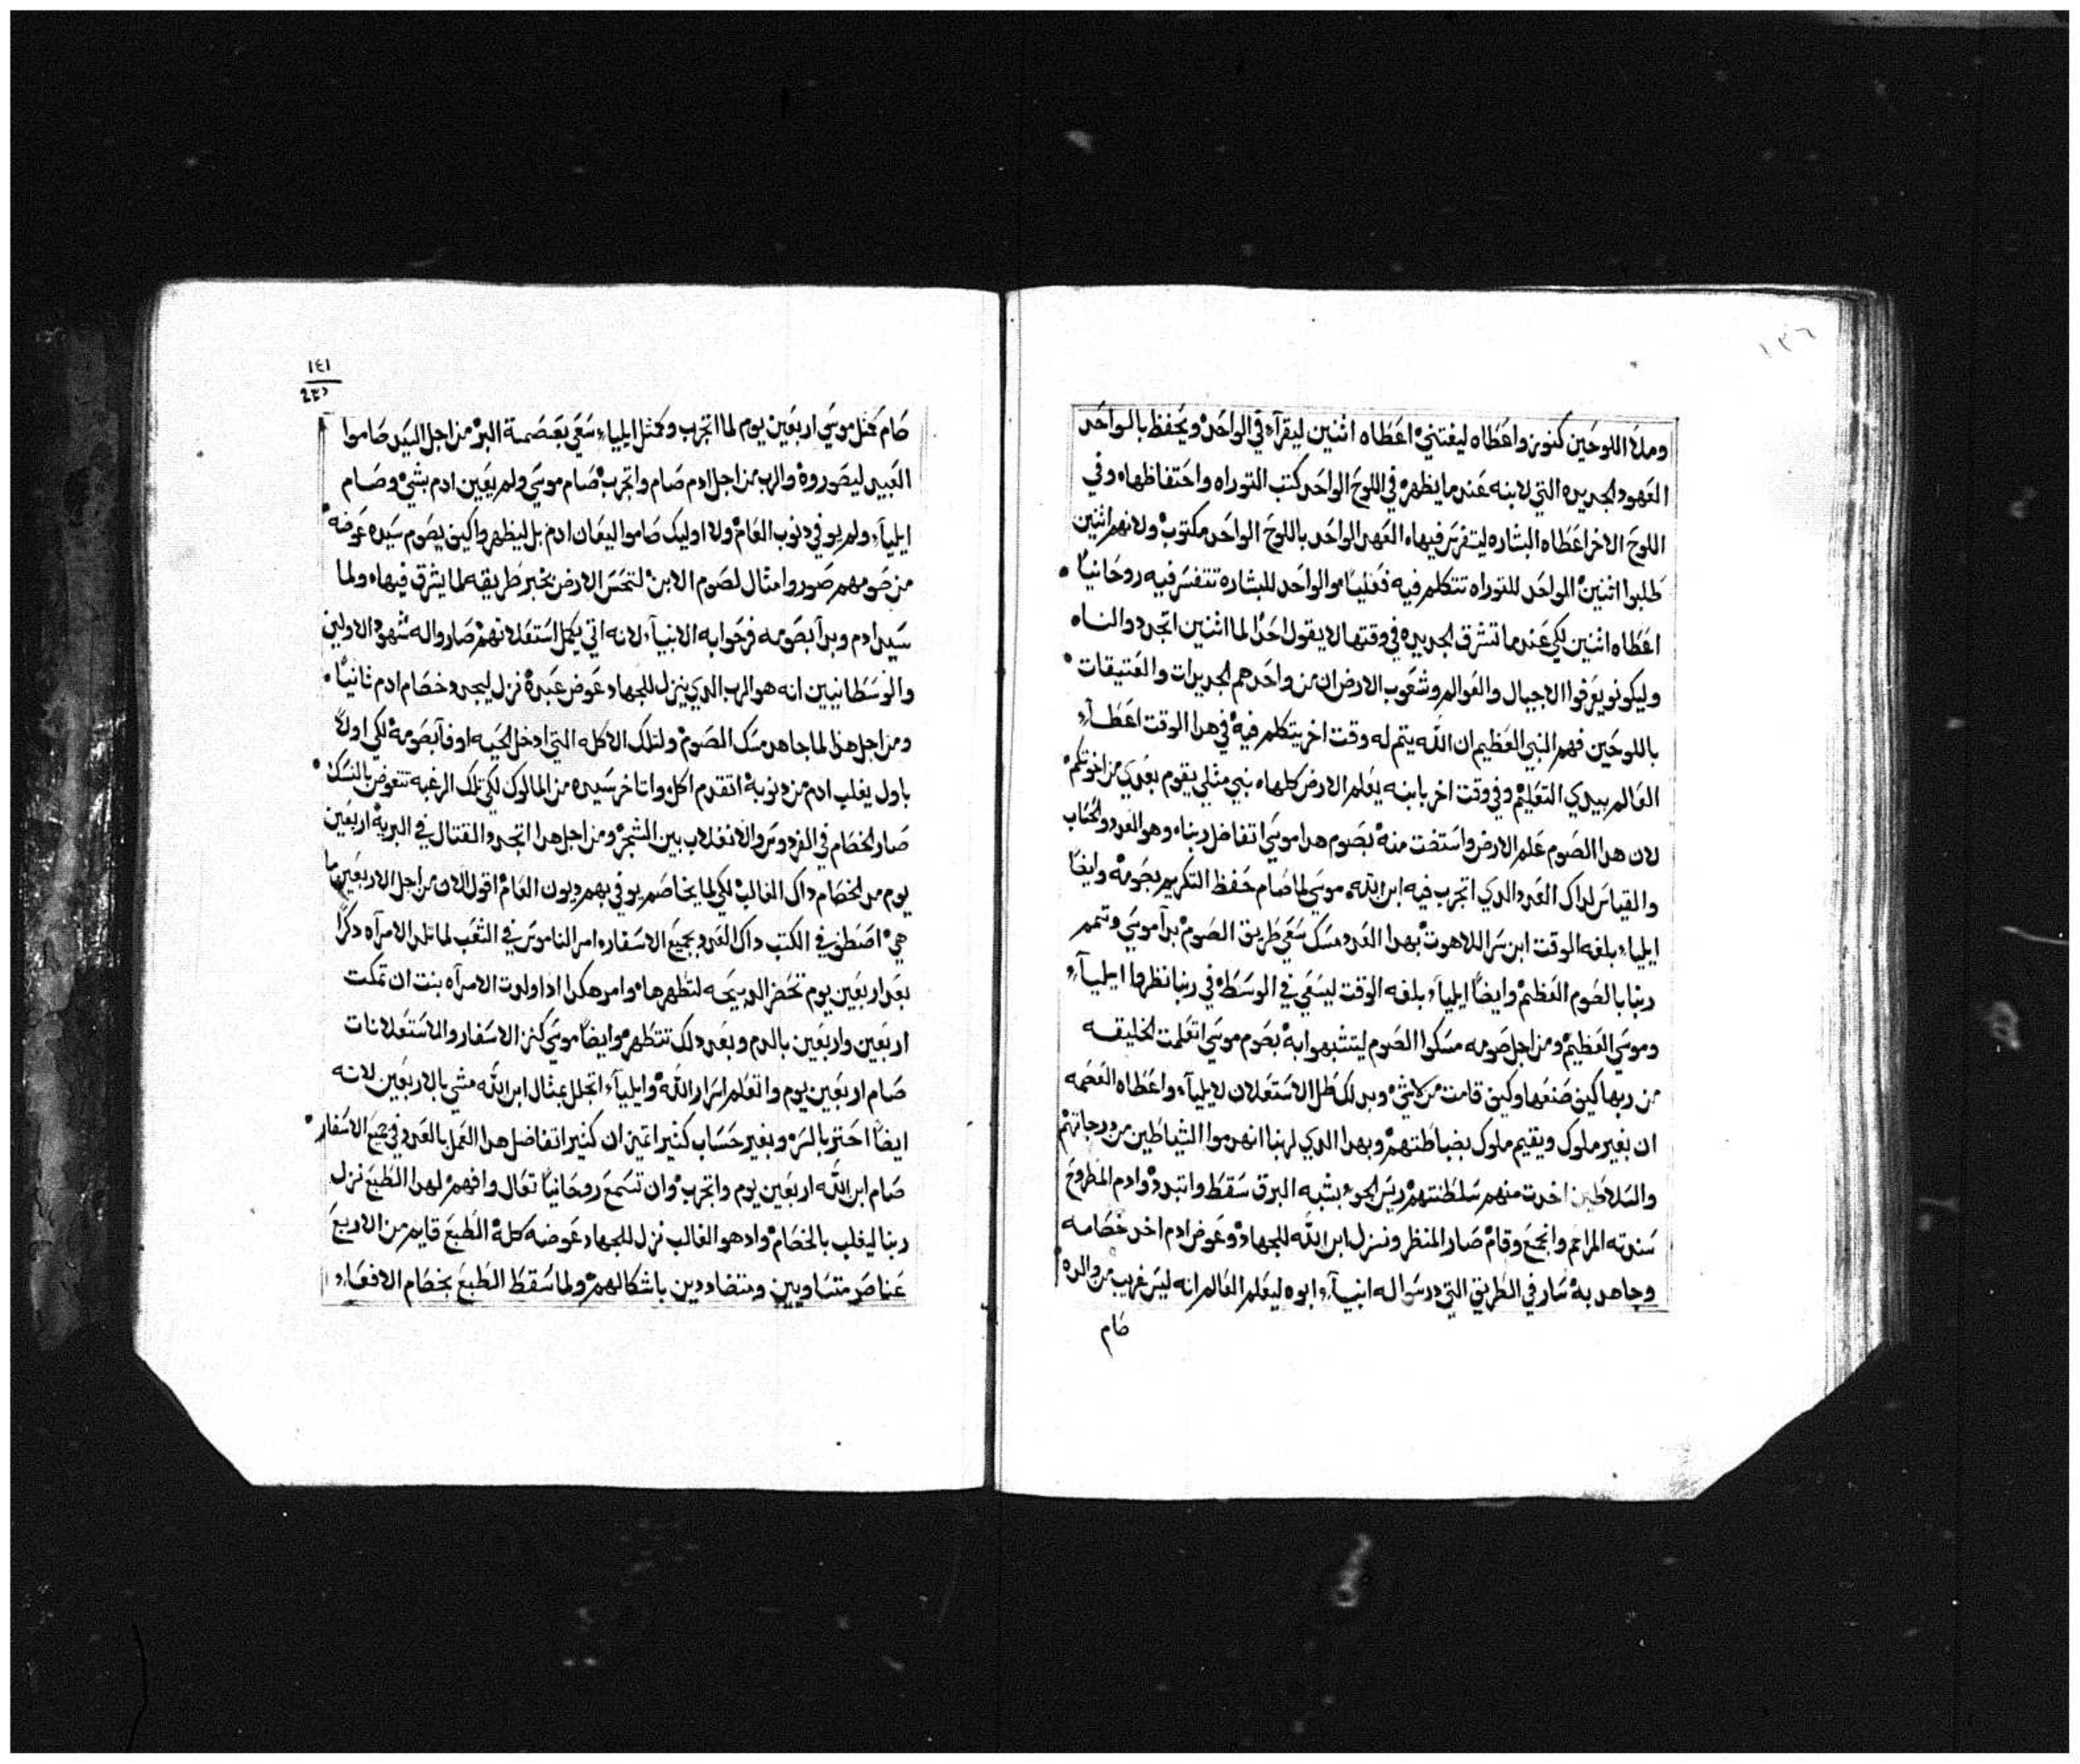 ١٣٦
وملا اللوحين كنوز واعطاه ليفتني اعطاه اثنين ليقراء في الواحد ويحفظ بالواحد
العهود الجديده التي لابنه عندما يظهر في اللوح الواحد كتب التوراه واحتفاظها وفي
اللوح الاخر اعطاه البشاره ليتفرس فيها العهد الواحد باللوح الواحد مكتوب ولانهم اثنين
طلبوا اثنين الواحد للتوراه تتكلم فيه فعليا والواحد للبشاره تتفسر فيه روحانيا
اعطاه اثنين لكي عندما تشرق الجديده في وقتها لا يقول احدا لما اثنين اتجردوا لناه
وليكونو يعرفوا الاجيال والعوالم وشعوب الارض ان من واحد هم الجديدات والعتيقات
باللوحين فهم النبي العظيم ان الله يتم له وقت اخر يتكلم فيه في هدا الوقت اعطاء
العالم بيدي التعليم وفي وقت اخر بابنه يعلم الارض كلها نبي مثلي يقوم بعدي من اخوتكم
لان هدا الصوم علم الارض واستضت منه بصوم هدا موسي اتفاضل ربنا وهو العدد والحساب
والقياس لداك العدد الدي اتجرب فيه ابن الله موسي لما صام حفظ التكريم بصومه وايضا
ايلياء بلغه الوقت ابن سر اللاهوت بهدا العدد مسك سعي طريق الصوم بدا موسي وتمم
ربنا بالصوم العظيم وايضا ايلياء بلغه الوقت ليسعي في الوسطه في ربنا نظروا ايلياء
وموسي العظيم ومن اجل صومه مسكوا الصوم ليتشبهوا به بصوم موسي اتعلمت الخليقه
من ربها كيف صنعها وكيف قامت من لاشي وبدلك ظل الاستعلان لايلياء واعطاه العصمه
ان بغير ملوك ويقيم ملوك بضباطتهم وبهدا الدي لربنا انهدموا الشياطين من درجاتهم
والسلاطين اخدت منهم سلطنتهم ريس الجو بشبه البرق سقط واتبدد وادم المطروح
سندته المراحم وانجمع وقام صار المنظر ونزل ابن الله للجهاد وعوض ادم اخد خصامه
وجاهد به سار في الطريق التي درسوا له انبياء ابوه ليعلم العالم انه ليس غريب من والده
صام
١٤١
صام كمثل موسي اربعين يوم لما اتجرب وكمثل ايلياء سعي بعصمة البر من اجل السيد صاموا
العبيد ليصوروه والرب من اجل ادم صام واتجرب صام موسي ولم يعين ادم بشي وصام
ايلياء ولم يوفي دنوب العام ولا اوليك صاموا ليعان ادم بل ليظهروا كيف يصوم سيده عوضه
من صومهم صوروا مثال لصوم الابن لتحس الارض بخبر طريقه لما يشرق فيها ولما
سيد ادم وبدا بصومه فرحوا به الانبياء لانه اتي يكمل استعلانهم صاروا له شهود الاولين
والوسطانيين انه هو الرب الدي ينزل للجهاد عوض عبده نزل ليجدد خصام ادم ثانيا
ومن اجل هدا لما جاهد مسك الصوم ولتلك الاكله التي ادخل الحيه اوفا بصومه لكي اولا
باول يغلب ادم من دنوبه اتقدم اكل واتاخر سيده من الماكول لكي تلك الرغبه تتعوض بالنسك
صار الخصام في الفردوس والانغلاب بين الشجر ومن اجل هدا اتجدد القتال في البريه اربعين
يوم مد الخصام داك الغالب لكي لما يخاصم يوفي بهم ديون العام اقول الان من اجل الاربعين ما
هي اصطفي في الكتب داك العدد بجميع الاسفار امر الناموس في التعب لما تلد الامراه دكرا
بعد اربعين يوم تحضر الدبيحه لتطهرها وامر هكدا ادا ولدت الامراه بنت ان تمكت
اربعين واربعين بالدم وبعد دلك تتطهر وايضا موسي كنز الاسفار والاستعلانات
صام اربعين يوم واتعلم اسرار الله وايلياء اتجلل بمثال ابن الله مشي بالاربعين لانه
ايضا احتز بالسر وبغير حساب كثير اتمين ان كثير اتفاضل هدا العمل بالعدد في جميع الاسفار
صام ابن الله اربعين يوم واتجرب وان تسمع روحانيا تعال وافهم لهدا الطبع نزل
ربنا ليغلب بالخصام واد هو الغالب نزل للجهاد عوضه كلة الطبع قايم من الاربع
عناصر متساويين ومتضاددين باشكالهم ولما سقط الطبع بخصام الافعاء